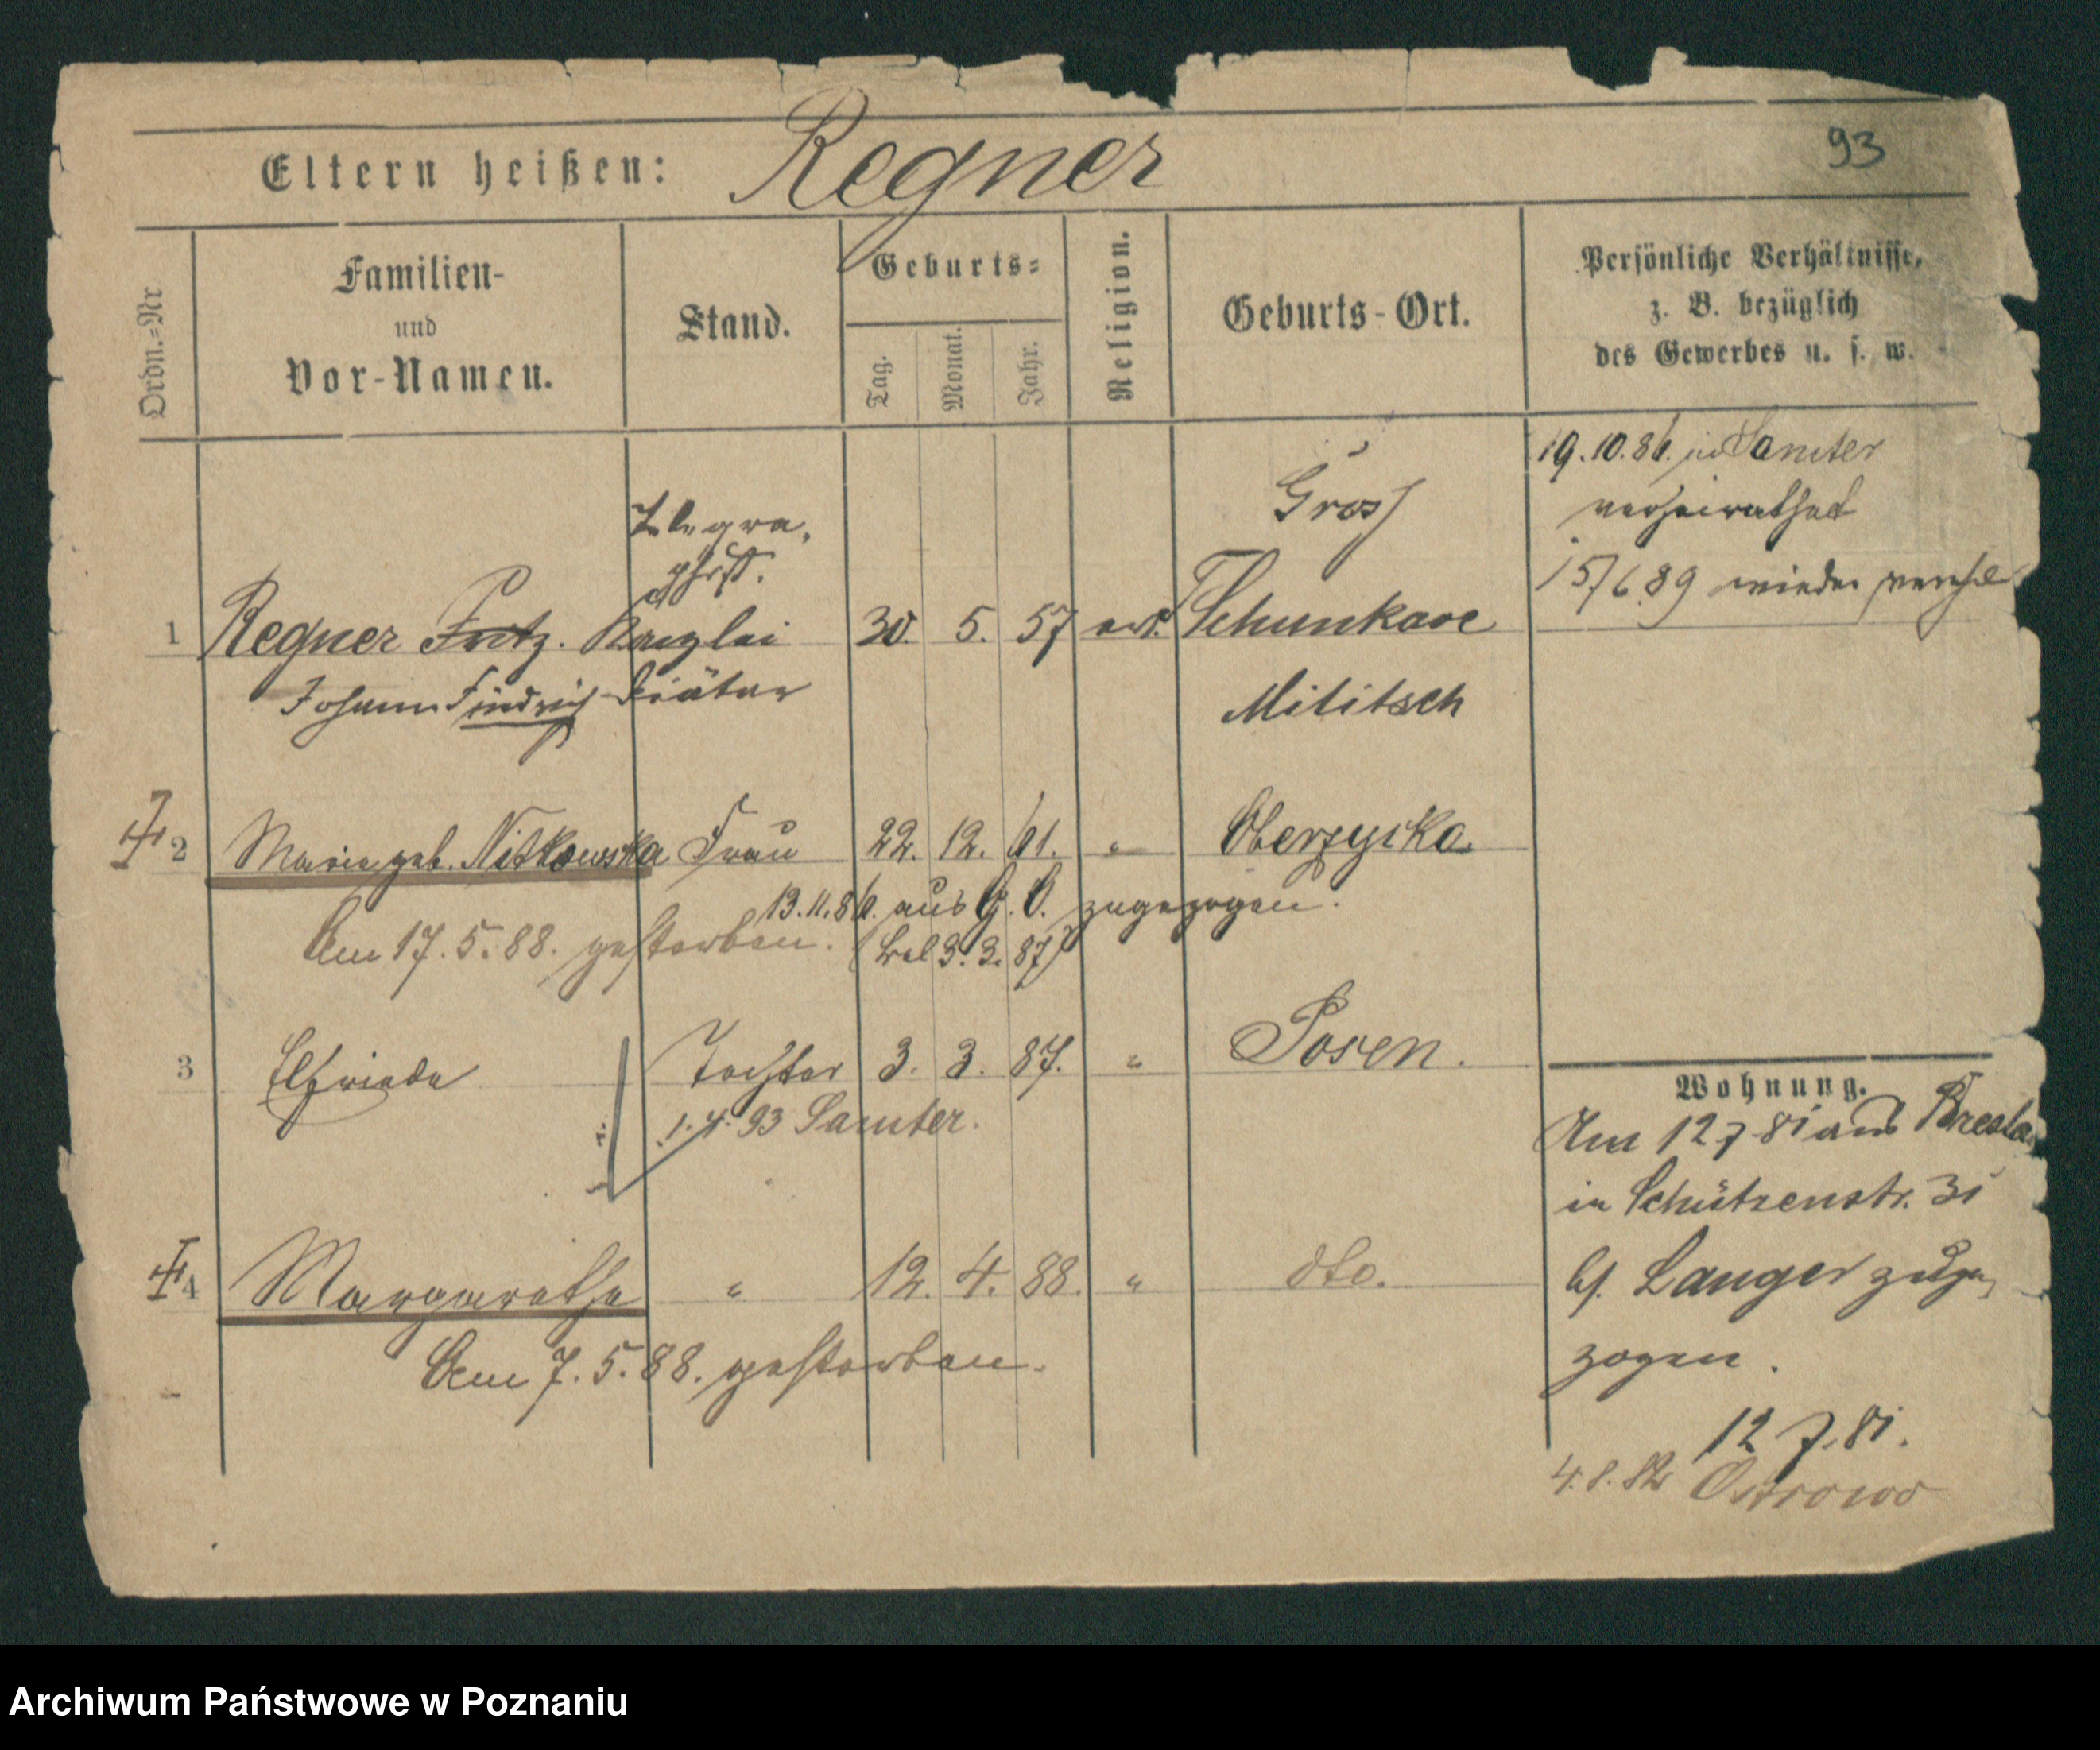 93
Eltern heißen: Regner
Ordn.=Nr
Familien-
und
Vor-Namen.
Stand.
Geburts=
Tag.
Monat.
Jahr.
Religion.
Geburts-Ort.
Persönliche Verhältnisse,
z. B. bezüglich
des Gewerbes u. s. w.
19.10.86. in Samter
verheirathet
15/6 89 wieder
Telegra-
phist.
Gross
1 Regner Fritz. Kanzlei 30. 5. 57 Schunkave
Johann Friedrich Diätar
Militsch
2 Marie geb. Nitkowska Frau 22. 12. 61. " Obersycko.
13.11.86. aus G. O. zugezogen.
Am 17.5.88. gestorben. 3.3.87)
3 Elfriede Tochter 3. 3. 87. " Posen.
1.4.93 Samter.
4 Margarethe " 12. 4. 88. " dto.
Am 7.5.88. gestorben.
Wohnung.
Am 12 7 81 aus Bresla
in Schützenstr. 31
bj. Langer zuge-
zogen.
12 7. 81.
4.8.82 Ostrowo
Archiwum Państwowe w Poznaniu